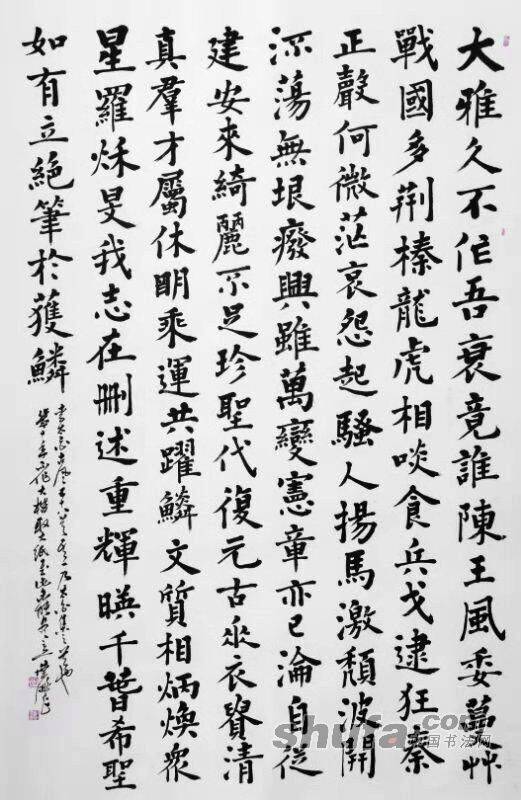 大雅久不作吾衰竟誰陳王風委蔓艸
戰國多荆榛龍虎相啖食兵戈逮狂秦
正聲何微茫哀怨起騷人揚馬激頹波開
流蕩無垠癈興雖萬變憲章亦已淪自從
建安來綺麗不足珍聖代復元古垂衣貴清
真羣才屬休明乘運共躍鱗文質相炳煥衆
星羅秌旻我志在刪述重輝暎千春希聖
如有立絶筆於獲鱗
shufa.com
中国书法网